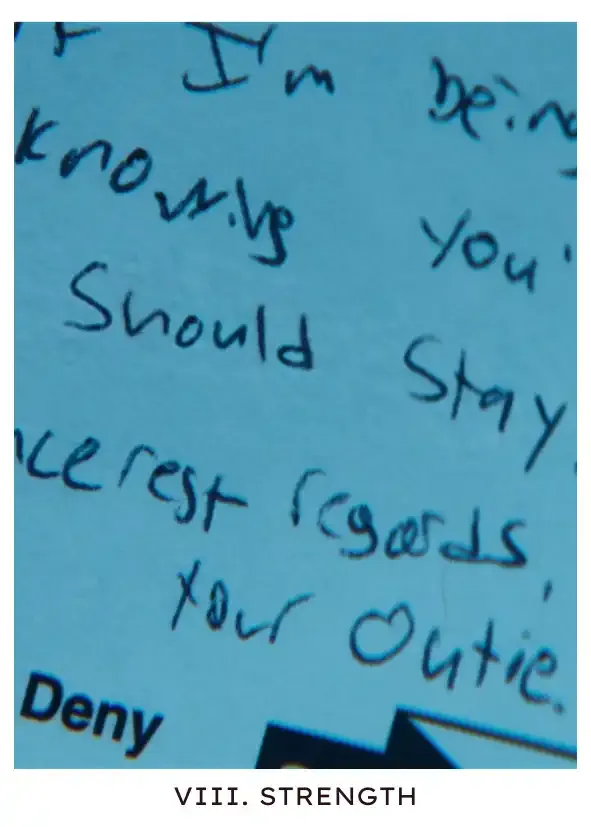 I'm being
knowing you'
Should Stay.
ncerest regards,
Your Outie.
Deny
VIII. STRENGTH